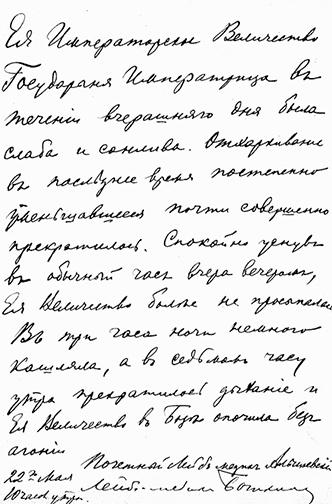 Ея Императорское Величество
Государыня Императрица въ
теченіи вчерашняго дня была
слаба и сонлива. Отхаркиваніе
въ послѣднее время постепенно
уменьшавшееся почти совершенно
прекратилось. Спокойно уснувъ
въ обычный часъ вчера вечеромъ,
Ея Величество болѣе не просыпалась.
Въ три часа ночи немного
кашляла, а въ седьмомъ часу
утра прекратилось дыханіе и
Ея Величество въ Бозѣ опочила безъ
агоніи
Почетный Лейбъ медикъ Алышевскій
22го Мая Лейбъ-медикъ Боткинъ
10 часов утра.